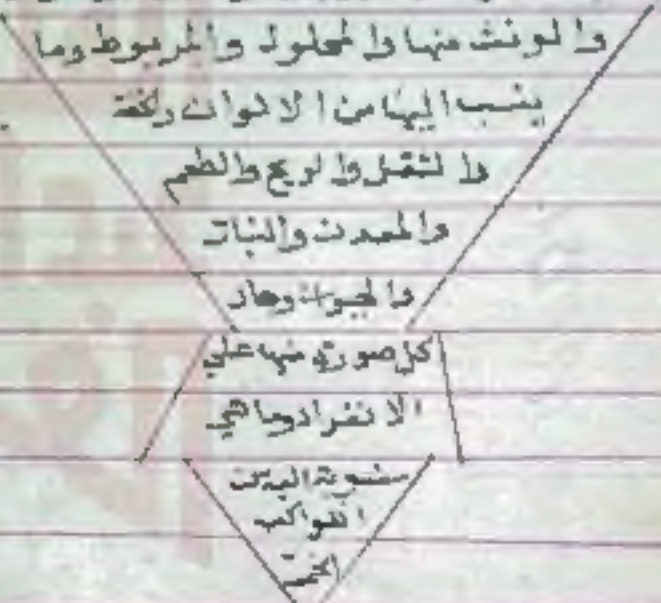 والمونث منها والمحلول والمربوط وما
ينسب اليها من الالوان والخفة
والثقل والريح والطعم
والمعدن والنبات
والحيوان وصار
كل صورة منه علي
الانفراد وما هي
منسوبة اليه من
الكواكب